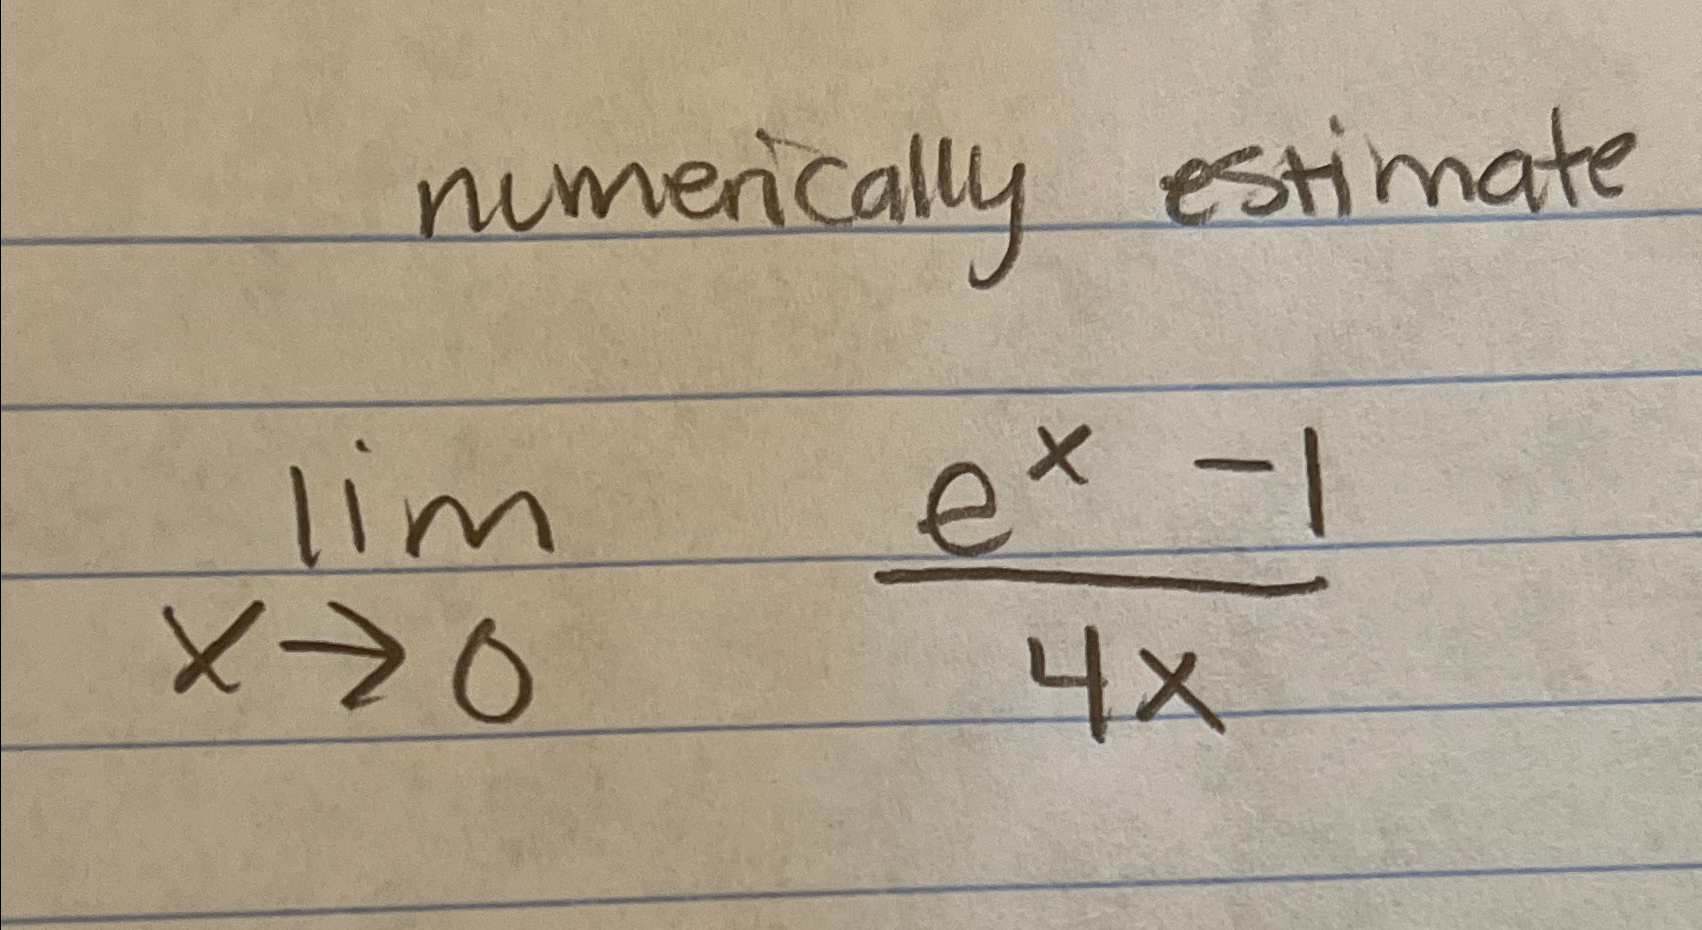 numerically estimate
lim e^x - 1
x→0 4x